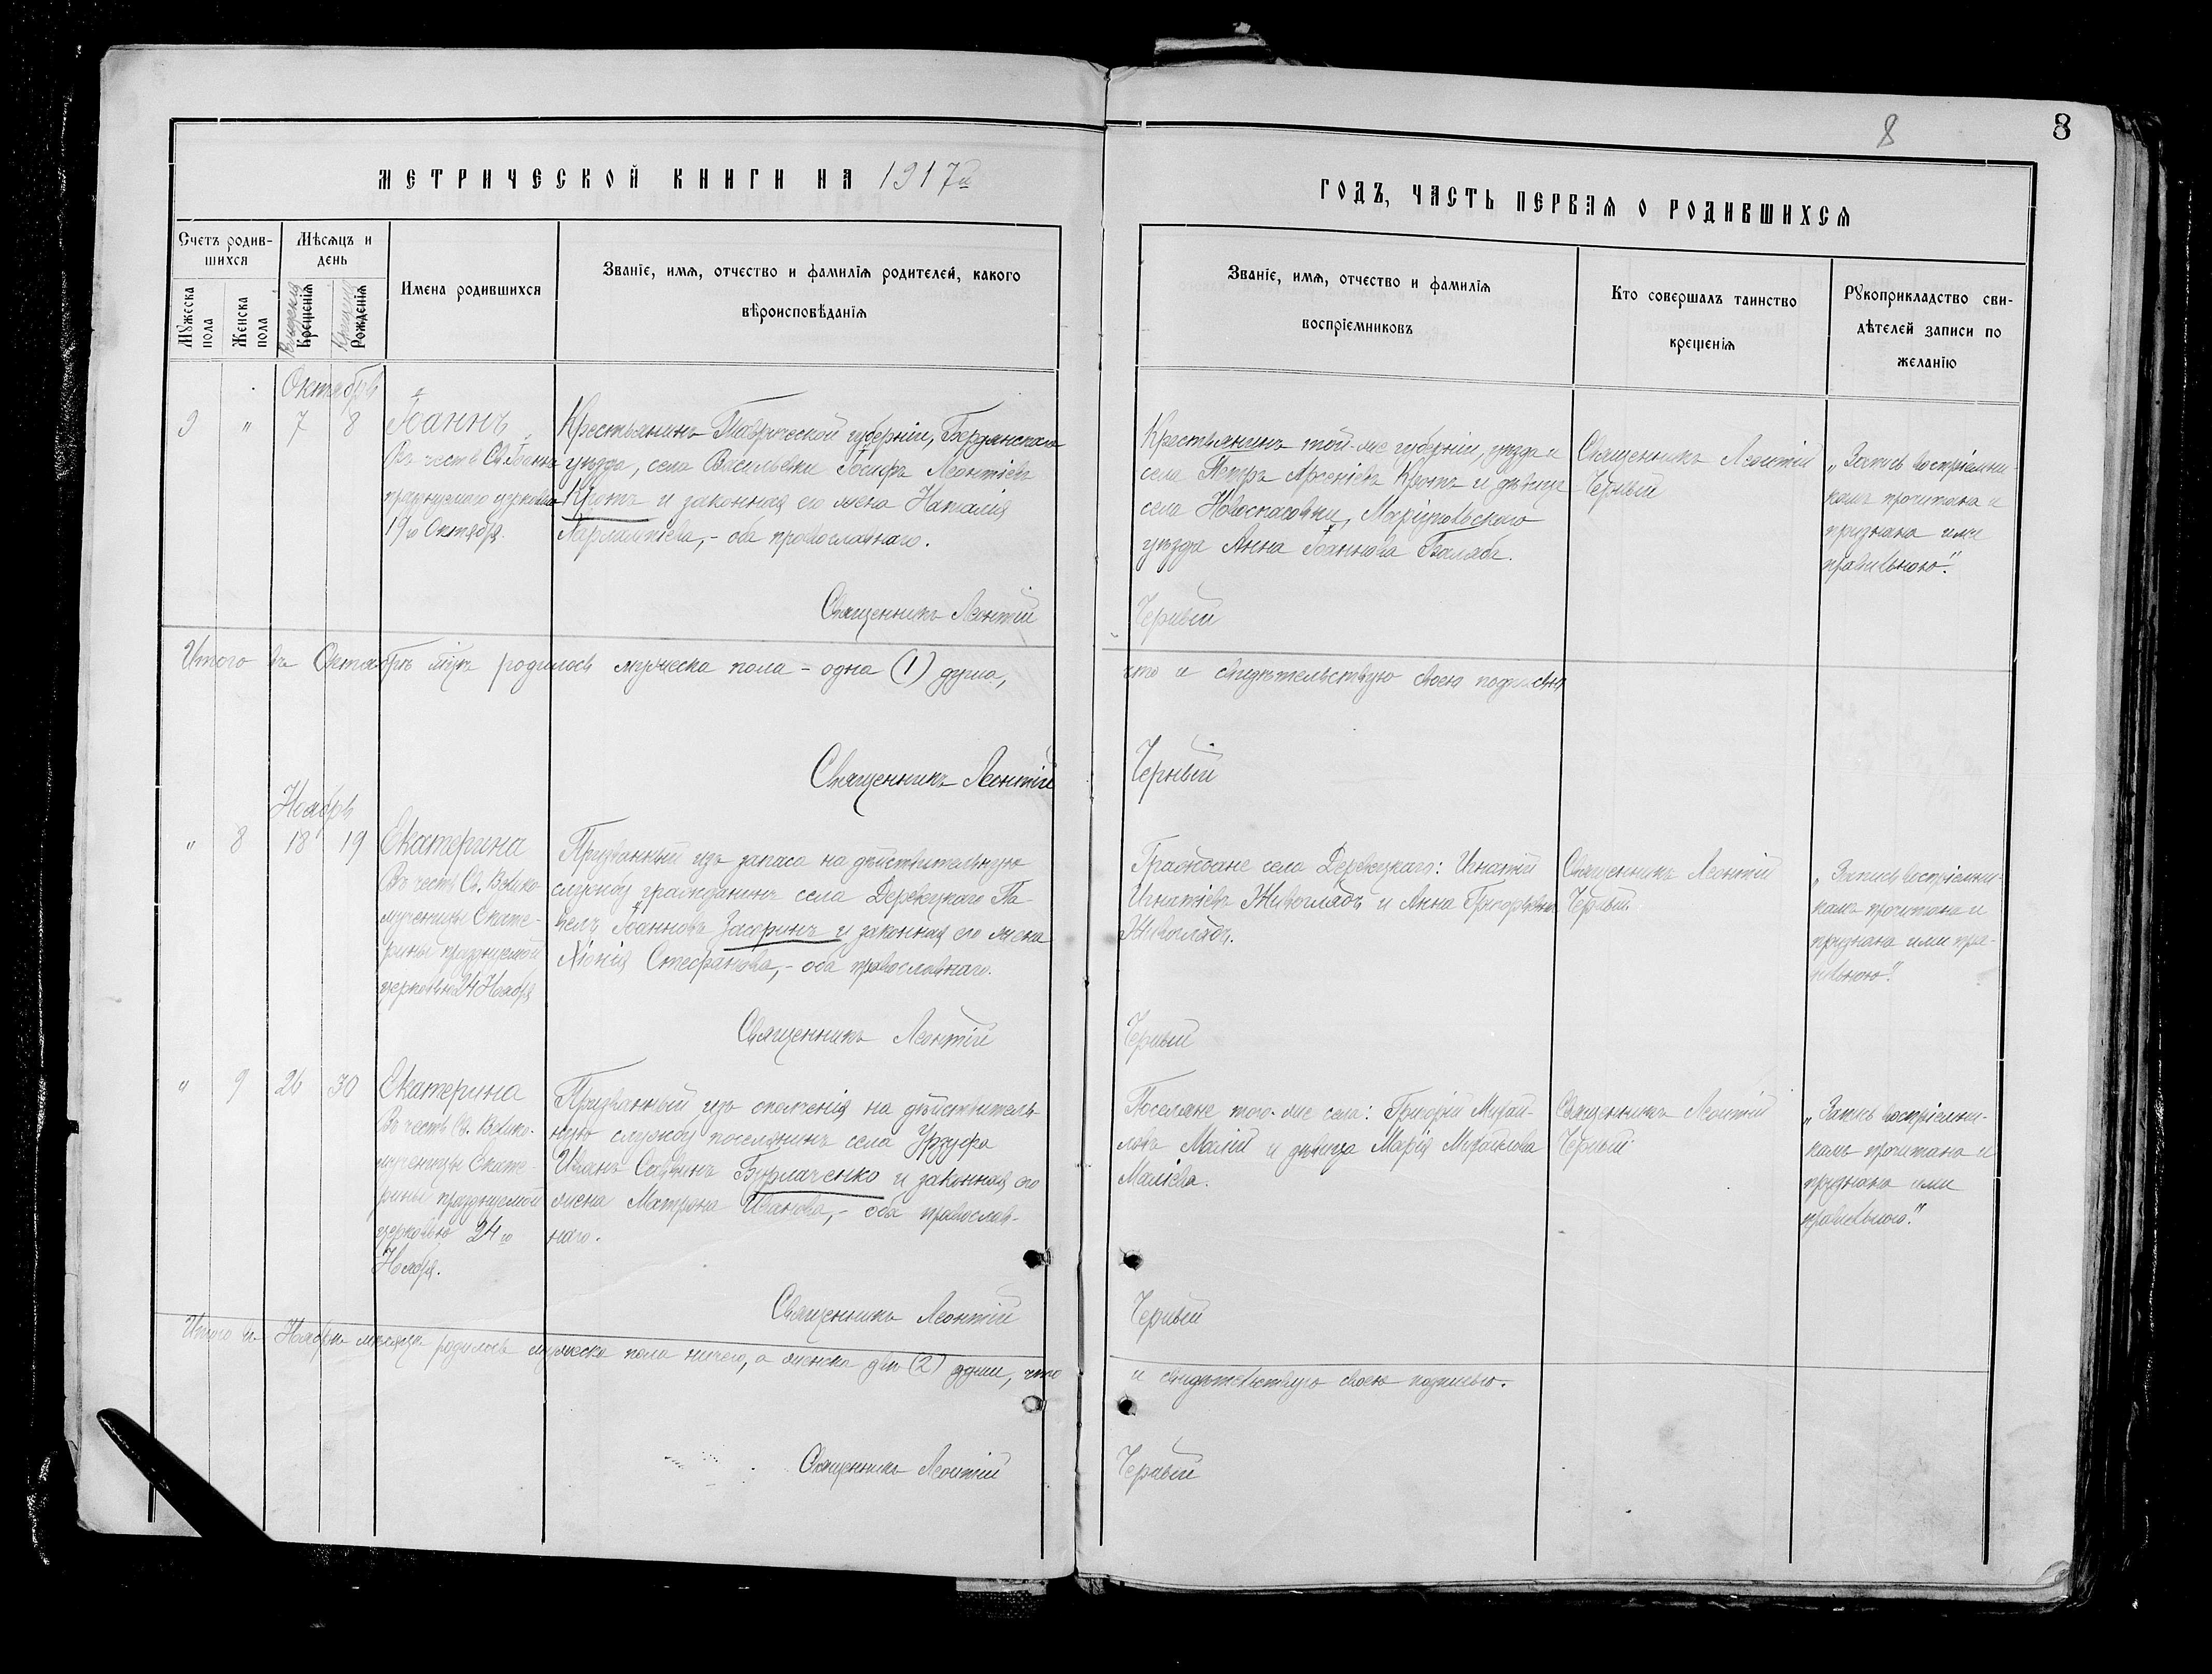 МЕТРИЧЕСКОЙ КНИГИ НА 1917й
Счетъ родив-
шихся
Мѣсяцъ и
день
Имена родившихся
Званіе, имя, отчество и фамилія родителей, какого
вѣроисповѣданія
Мужеска пола
Женска пола
Крещенія
Рожденія
Рожденія
Крещенія
Октябрь
9 " 7 8
Іоаннъ
Въ честь Св. Іоанна
празднуемаго церковью
19го Октября.
Крестьянинъ Таврической губерніи, Бердянскаго
уѣзда, села Васильевки Іосифъ Леонтіевъ
Кротъ и законная его жена Наталія
Харлампіева, - оба православнаго.
Священникъ Леонтій
Итого въ Октябрѣ м-цѣ родилось мужеска пола - одна (1) душа,
Священникъ Леонтій
Ноябрь
" 8 18 19
Екатерина
Въ честь Св. Велико-
мученицы Екате-
рины празднуемой
церковью 24 Ноября
Призванный изъ запаса на дѣйствительную
службу гражданинъ села Деревецкаго Па-
велъ Іоанновъ Засоринъ и законная его жена
Хіонія Стефанова, - оба православнаго.
Священникъ Леонтій
" 9 26 30
Екатерина
Въ честь Св. Велико-
мученицы Екате-
рины празднуемой
церковью 24го
Ноября.
Призванный изъ ополченія на дѣйствитель-
ную службу поселянинъ села Урзуфа
Иванъ Саввинъ Бурлаченко и законная его
жена Матрона Иванова, - оба православ-
наго.
Священникъ Леонтій
Итого въ Ноябрѣ мѣсяцѣ родилось мужеска пола ничего, а женска двѣ (2) души, что
Священникъ Леонтій
8
8
ГОДЪ, ЧАСТЬ ПЕРВАЯ О РОДИВШИХСЯ
Званіе, имя, отчество и фамилія
воспріемниковъ
Кто совершалъ таинство
крещенія
Рукоприкладство сви-
дѣтелей записи по
желанію
Крестьянинъ той-же губерніи, уѣзда и
села Петръ Арсеніевъ Кротъ и дѣвица
села Новоспасовки, Маріупольскаго
уѣзда Анна Іоаннова Балаба.
Священникъ Леонтій
Черный
"Запись воспріемни-
камъ прочитана и
признана ими
правильною."
Черный
что и свидѣтельствую своею подписью
Черный
Граждане села Деревецкаго: Игнатій
Игнатіевъ Живоглядъ и Анна Григорьевна
Живоглядъ.
Священникъ Леонтій
Черный
"Запись воспріемни-
камъ прочитана и
признана ими пра-
вильною."
Черный
Поселяне того-же села: Григорій Михай-
ловъ Малій и дѣвица Марія Михайлова
Маліева.
Священникъ Леонтій
Черный
"Запись воспріемни-
камъ прочитана и
признана ими
правильною."
Черный
и свидѣтельствую своею подписью.
Черный